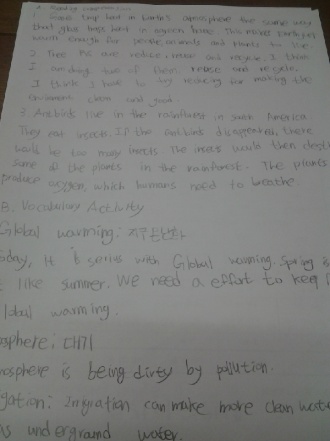 A. Reading Comprehension
1. Gases trap heat in Earth's atmosphere the same way
that glass traps heat in a green house. This makes Earth just
warm enough for people, animals and plants to live.
2. Three R's are reduce, reuse and recycle. I think
I am doing two of them, reuse and recycle.
I think I have to try reducing for making the
enviroment clean and good.
3. Antbirds live in the rainforest in south America
They eat insects. If the antbirds disappeared, there
would be too many insects. The insects would then
some of the plants in the rainforest. The plants
produce oxygen, which humans need to breathe
B. Vocabulary Activity
Global warming: 지구온난화
oday, It is serius with Global worming. Spring is
t like summer. We need a effort to keep
lobal warming.
osphere: 대기
mosphere is being dirty by pollution.
gation: Irrigation can make more clean water
as underground water.